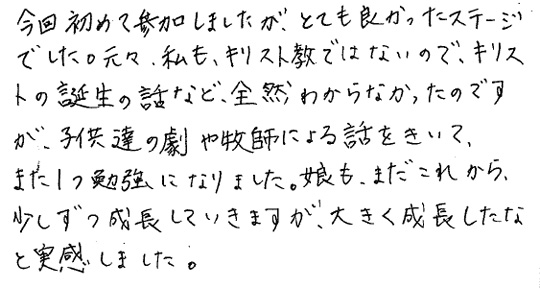 今回初めて参加しましたが、とても良かったステージ
でした。元々、私も、キリスト教ではないので、キリス
トの誕生の話など、全然わからなかったのです
が、子供達の劇や牧師による話をきいて、
また1つ勉強になりました。娘も、まだこれから、
少しずつ成長していきますが、大きく成長したな
と実感しました。